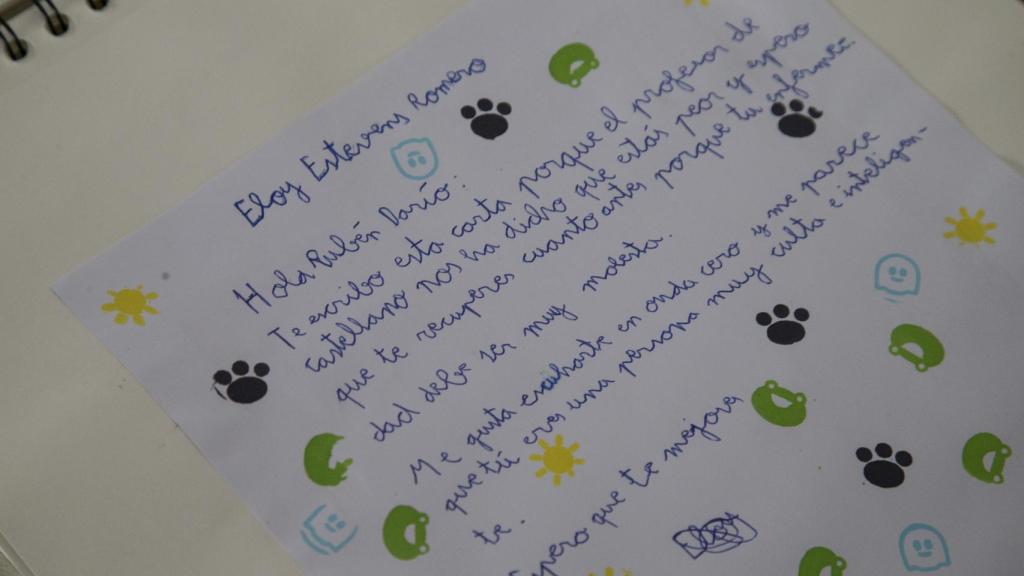 Eloy Estevens Romero
Hola Rubén Darío:
Te escribo esta carta porque el profesor de
castellano nos ha dicho que estás peor y espero
que te recuperes cuanto antes porque tu enferme-
dad debe ser muy molesta.
Me gusta escucharte en onda cero y me parece
que tú eres una persona muy culta e inteligen-
te.
Espero que te mejores
Eloy